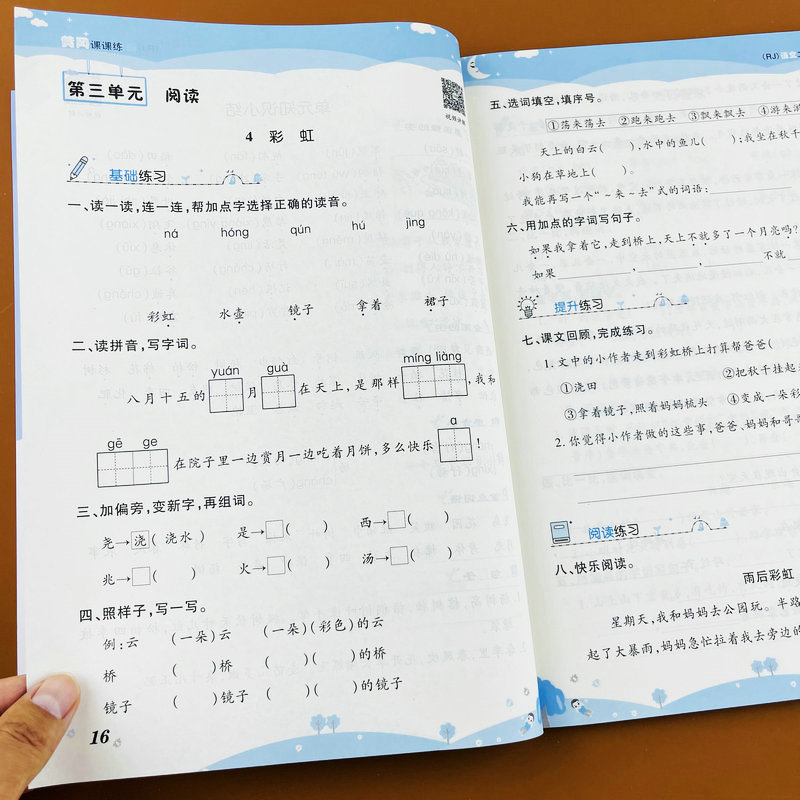 黄冈课课练
第三单元 阅读
视频讲解
4 彩虹
基础练习
一、读一读,连一连,帮加点字选择正确的读音。
ná hóng qún hú jìng
彩虹 水壶 镜子 拿着 裙子
二、读拼音,写字词。
yuán guà míng liàng
八月十五的 月 在天上,是那样 ,我和
gē ge a
在院子里一边赏月一边吃着月饼,多么快乐 !
三、加偏旁,变新字,再组词。
尧→浇(浇水) 是→□( ) 西→□( )
兆→□( ) 火→□( ) 汤→□( )
四、照样子,写一写。
例:云 (一朵)云 (一朵)(彩色)的云
桥 ( )桥 ( )( )的桥
镜子 ( )镜子 ( )( )的镜子
16
(RJ) 语文二
五、选词填空,填序号。
①荡来荡去 ②跑来跑去 ③飘来飘去 ④游来游
天上的白云( ),水中的鱼儿( );我坐在秋千
小狗在草地上( )。
我能再写一个“~来~去”式的词语:
六、用加点的字词写句子。
如果我拿着它,走到桥上,天上不就多了一个月亮吗?
如果 , , 不就
提升练习
七、课文回顾,完成练习。
1.文中的小作者走到彩虹桥上打算帮爸爸(
①浇田 ②把秋千挂起
③拿着镜子,照着妈妈梳头 ④变成一朵彩
2.你觉得小作者做的这些事,爸爸、妈妈和哥哥
阅读练习
八、快乐阅读。
雨后彩虹
星期天,我和妈妈去公园玩。半路
起了大暴雨,妈妈急忙拉着我去旁边的